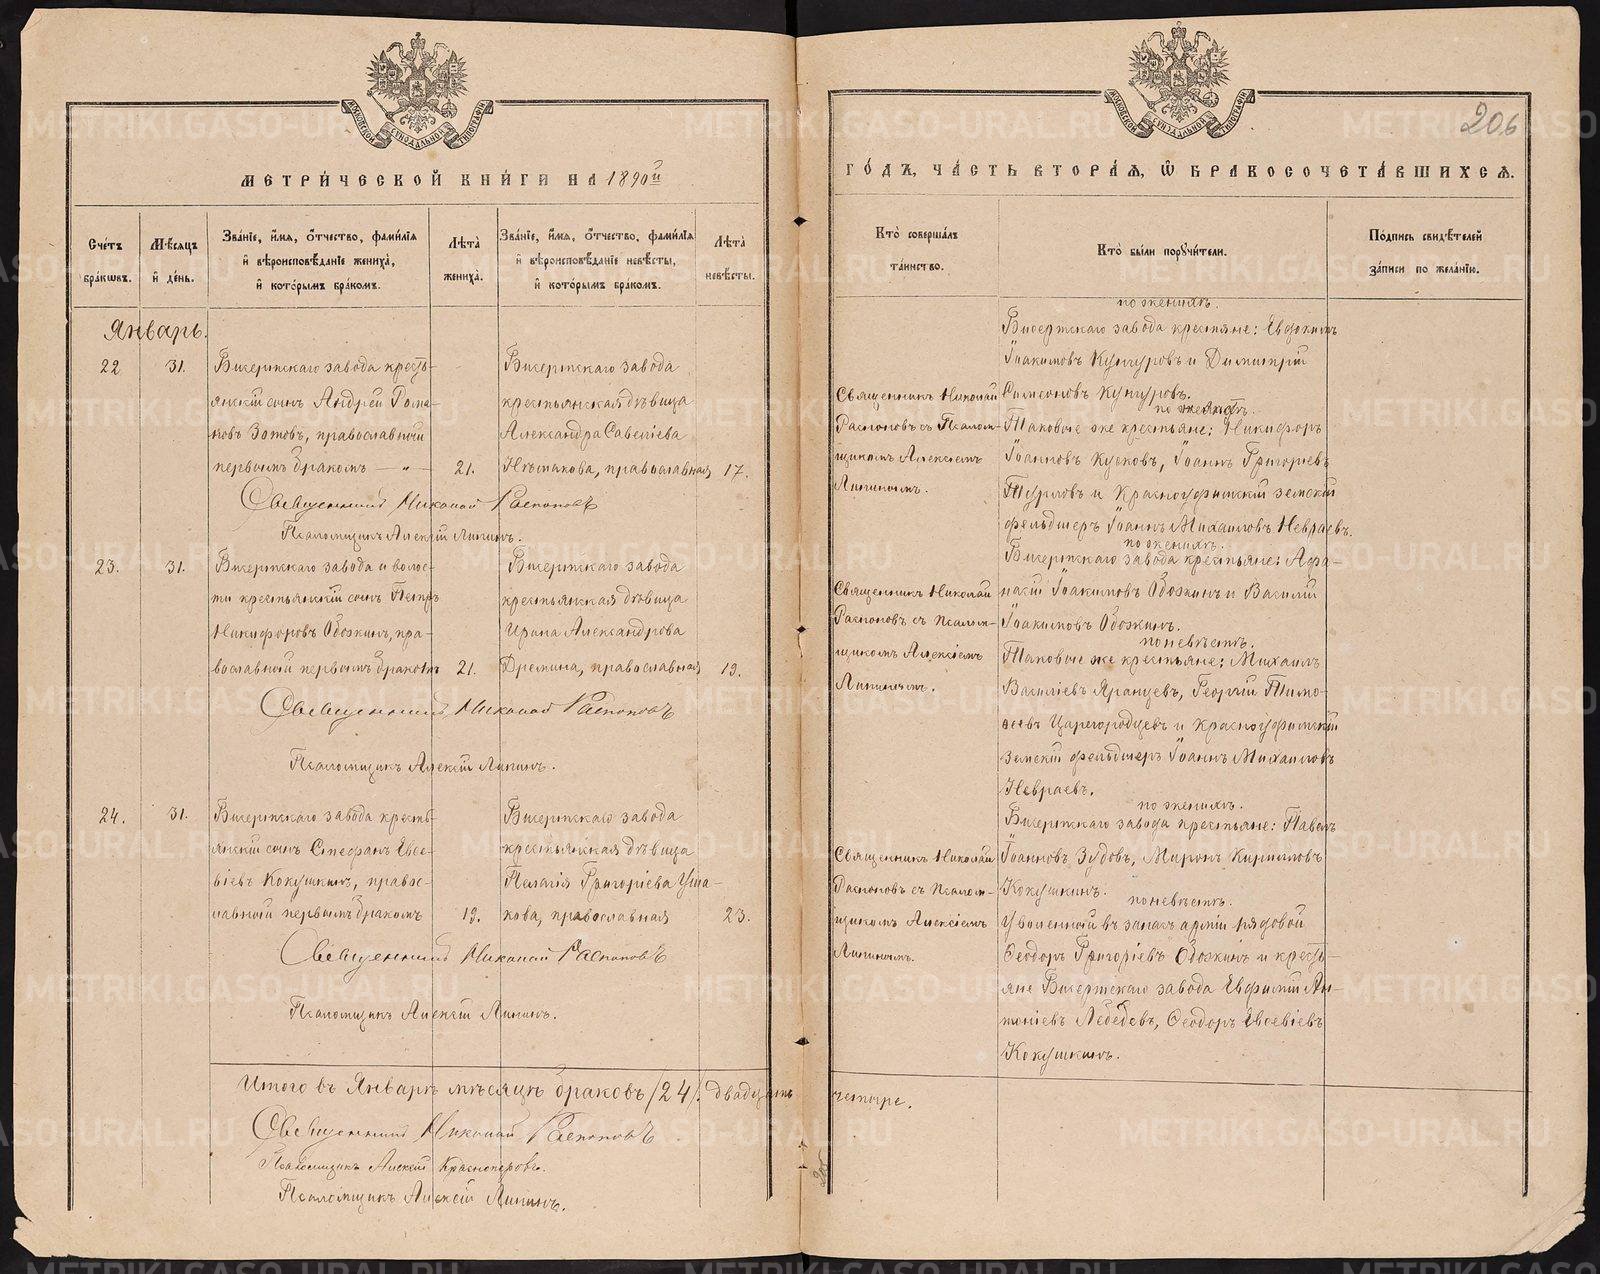 МОСКОВСКОЙ СѴНОДАЛЬНОЙ ТИПОГРАФІИ
МЕТРИ́ЧЕСКОЙ КНИ́ГИ НА 1890й
Сче́тъ бра́кωвъ.
Мѣ́сяцъ и҆ де́нь.
Зва́нїе, и҆́мя, ѻ҆́тчество, фами́лїя и҆ вѣроисповѣ́данїе жениха̀, и҆ кото́рымъ бра́комъ.
Лѣта̀ жениха̀.
Зва́нїе, и҆́мя, ѻ҆́тчество, фами́лїя и҆ вѣроисповѣ́данїе невѣ́сты, и҆ кото́рымъ бра́комъ.
Лѣта̀ невѣ́сты.
Январь.
22
31.
Бисертскаго завода кресть-
янскій сынъ Андрей Рома-
новъ Зотовъ, православный
первымъ бракомъ — „ —
21.
Бисертскаго завода
крестьянская дѣвица
Александра Савеліева
православная
17.
Священникъ Николай Распоповъ
Псаломщикъ Алексій Липинъ.
23.
31.
Бисертскаго завода и волос-
ти крестьянскій сынъ Петръ
Никифоровъ Обожинъ, пра-
вославный первымъ бракомъ
21.
Бисертскаго завода
крестьянская дѣвица
Ирина Александрова
Дремина, православная
19.
Священникъ Николай Распоповъ
Псаломщикъ Алексій Липинъ.
24.
31.
Бисертскаго завода кресть-
янскій сынъ Стефанъ Евсе-
віевъ Кокушкинъ, правос-
лавный первымъ бракомъ
19.
Бисертскаго завода
крестьянская дѣвица
Пелагія Григоріева Уша-
кова, православная
23.
Священникъ Николай Распоповъ
Псаломщикъ Алексій Липинъ.
Итого въ Январѣ мѣсяцѣ браковъ /24/. двадцать
Священникъ Николай Распоповъ
Псаломщикъ Алексій Красноперовъ.
Псаломщикъ Алексій Липинъ.
МОСКОВСКОЙ СѴНОДАЛЬНОЙ ТИПОГРАФІИ
206
ГО́ДЪ, ЧА́СТЬ ВТОРА́Я, Ѽ БРАКОСОЧЕТА́ВШИХСЯ.
Кто̀ соверша́лъ та́инство.
Кто̀ бы́ли порꙋчи́тели.
По́дпись свидѣ́телей за́писи по жела́нїю.
по женихѣ.
Бисертскаго завода крестьяне: Евдокимъ
Іоакимовъ Кунгуровъ и Димитрій
Симеоновъ Кунгуровъ.
по невѣстѣ.
Таковые же крестьяне: Никифоръ
Іоанновъ Кусковъ, Іоаннъ Григоріевъ
Туриловъ и Красноуфимскій земскій
фельдшеръ Іоаннъ Михаиловъ Невраевъ.
Священникъ Николай
Распоповъ съ Псалом-
щикомъ Алексіемъ
Липинымъ.
по женихѣ.
Бисертскаго завода крестьяне: Афа-
насій Іоакимовъ Обожинъ и Василій
Іоакимовъ Обожинъ.
по невѣстѣ.
Таковые же крестьяне: Михаилъ
Василіевъ Яранцевъ, Георгій Тимо-
ѳеевъ Царегородцевъ и Красноуфимскій
земскій фельдшеръ Іоаннъ Михаиловъ
Невраевъ.
Священникъ Николай
Распоповъ съ Псалом-
щикомъ Алексіемъ
Липинымъ.
по женихѣ.
Бисертскаго завода крестьяне: Павелъ
Іоанновъ Зудовъ, Миронъ Кирилловъ
Кокушкинъ.
по невѣстѣ.
Уволенный въ запасъ арміи рядовой
Ѳеодоръ Григоріевъ Обожинъ и кресть-
яне Бисертскаго завода Евфимій Ан-
тоніевъ Лебедевъ, Ѳеодоръ Евсевіевъ
Кокушкинъ.
Священникъ Николай
Распоповъ съ Псалом-
щикомъ Алексіемъ
Липинымъ.
четыре.
METRIKI.GASO-URAL.RU